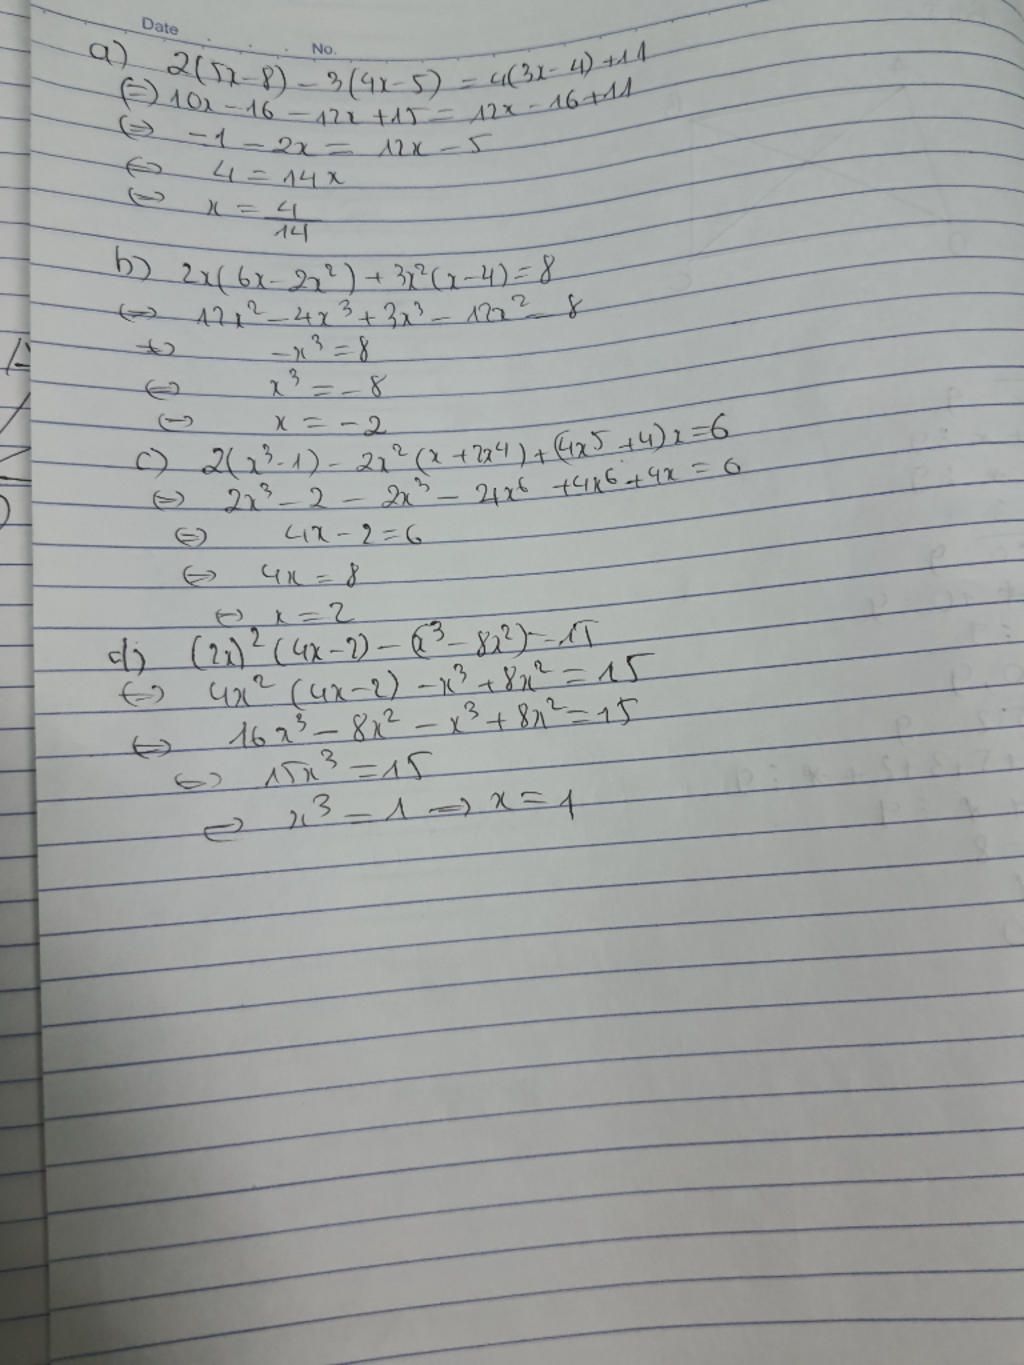 Date
No.
a) 2(5x-8) - 3(4x-5) = 4(3x-4)+11
(=) 10x-16-12x+15 = 12x-16+11
⇔ -1-2x = 12x-5
⇔ 4 = 14x
⇔ x = 4/14
b) 2x(6x-2x²) + 3x²(x-4) = 8
⇔ 12x² - 4x³ + 3x³ - 12x² = 8
⇔ -x³ = 8
⇔ x³ = -8
⇔ x = -2
c) 2(x³-1) - 2x²(x+2x⁴) + (4x⁵+4)x = 6
⇔ 2x³ - 2 - 2x³ - 4x⁶ + 4x⁶ + 4x = 6
⇔ 4x - 2 = 6
⇔ 4x = 8
⇔ x = 2
d) (2x)²(4x-2) - (x³-8x²) = 15
⇔ 4x²(4x-2) - x³ + 8x² = 15
⇔ 16x³ - 8x² - x³ + 8x² = 15
⇔ 15x³ = 15
⇔ x³ = 1 ⇒ x = 1